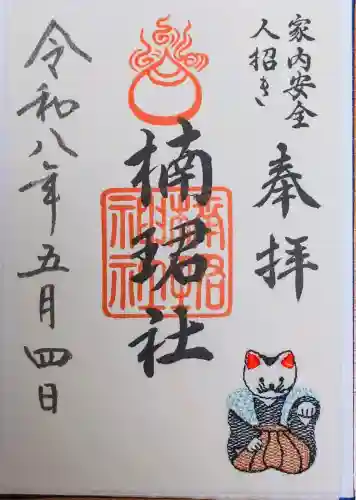 家内安全
人招き
奉拝
楠珺社
令和八年五月四日